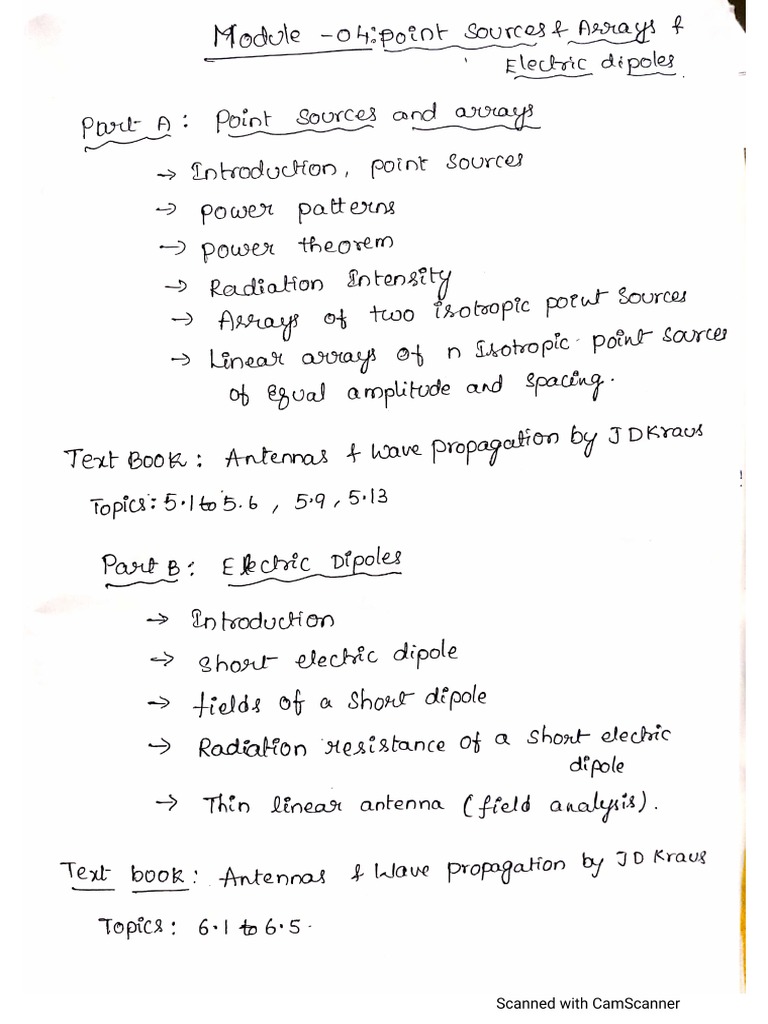 Module - 04: point Sources & Arrays &
Electric dipoles
Part A: Point Sources and arrays
→ Introduction, point sources
→ power patterns
→ power theorem
→ Radiation Intensity
→ Arrays of two isotropic point sources
→ Linear arrays of n Isotropic point sources
of Equal amplitude and spacing.
Text Book: Antennas & Wave propagation by J D Kraus
Topics: 5.1 to 5.6, 5.9, 5.13
Part B: Electric Dipoles
→ Introduction
→ short electric dipole
→ fields of a short dipole
→ Radiation resistance of a short electric
dipole
→ Thin linear antenna (field analysis).
Text book: Antennas & Wave propagation by J D Kraus
Topics: 6.1 to 6.5.
Scanned with CamScanner